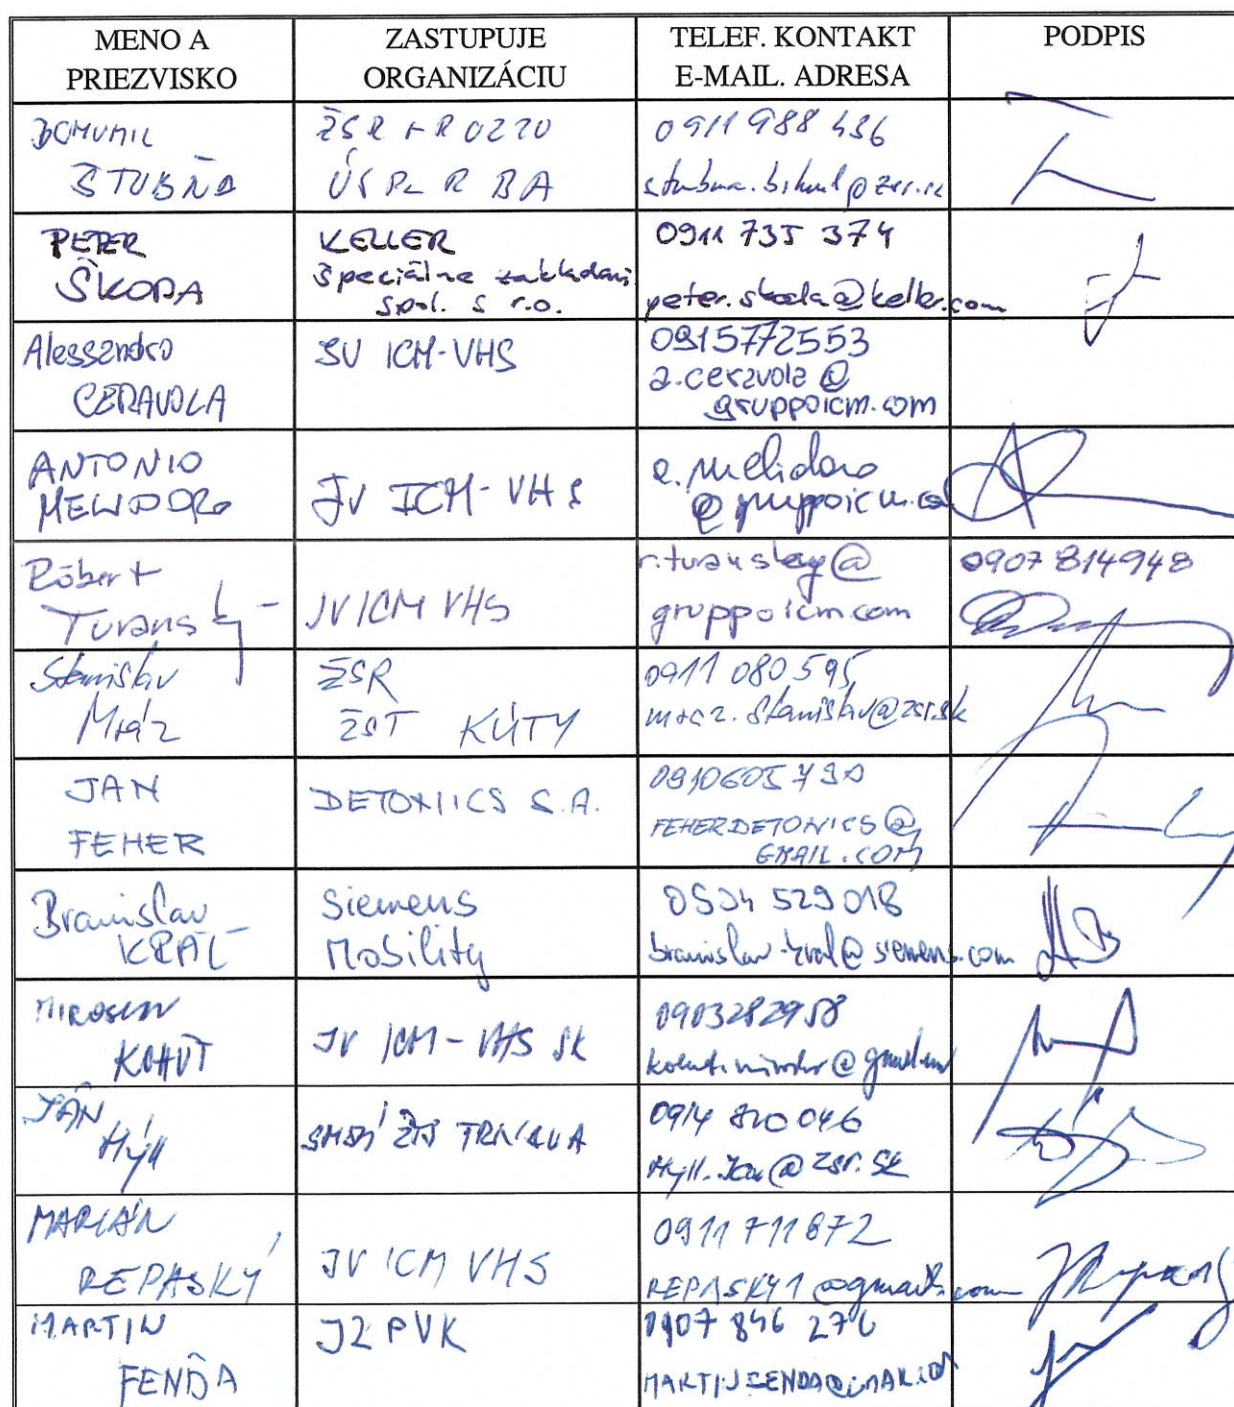 MENO A
PRIEZVISKO
ZASTUPUJE
ORGANIZÁCIU
TELEF. KONTAKT
E-MAIL. ADRESA
PODPIS
BOHUMIL
ŠTUBŇA
ŽSR
BA
0911 988 436
PETER
ŠKODA
KELLER
špeciálne zakladani
spol. s r.o.
0911 735 374
peter.skoda@keller.com
Alessandro
CERAVOLA
JV ICM-VHS
0915772553
a.ceravola@
gruppoicm.com
ANTONIO
MELIDORO
JV ICM-VHS
a.melidoro
@gruppoicm.co
Róbert
Turanský
JV ICM VHS
r.turansky@
gruppoicm.com
0907 814948
Stanislav
Mráz
ŽSR
ŽST KÚTY
0911 080 595
mraz.stanislav@zsr.sk
JAN
FEHER
DETONICS S.A.
FEHERDETONICS@
GMAIL.COM
Branislav
KRÁĽ
Siemens
Mobility
branislav.kral@siemens.com
MIROSLAV
KOHÚT
JV ICM-VHS SK
0903282958
JÁN
Hýll
TRNAVA
0914 820 046
Hyll.Jan@zsr.sk
MARIÁN
REPASKÝ
JV ICM VHS
0911 711 872
REPASKY1@gmail.com
MARTIN
FENĎA
J2 PVK
0907 846 276